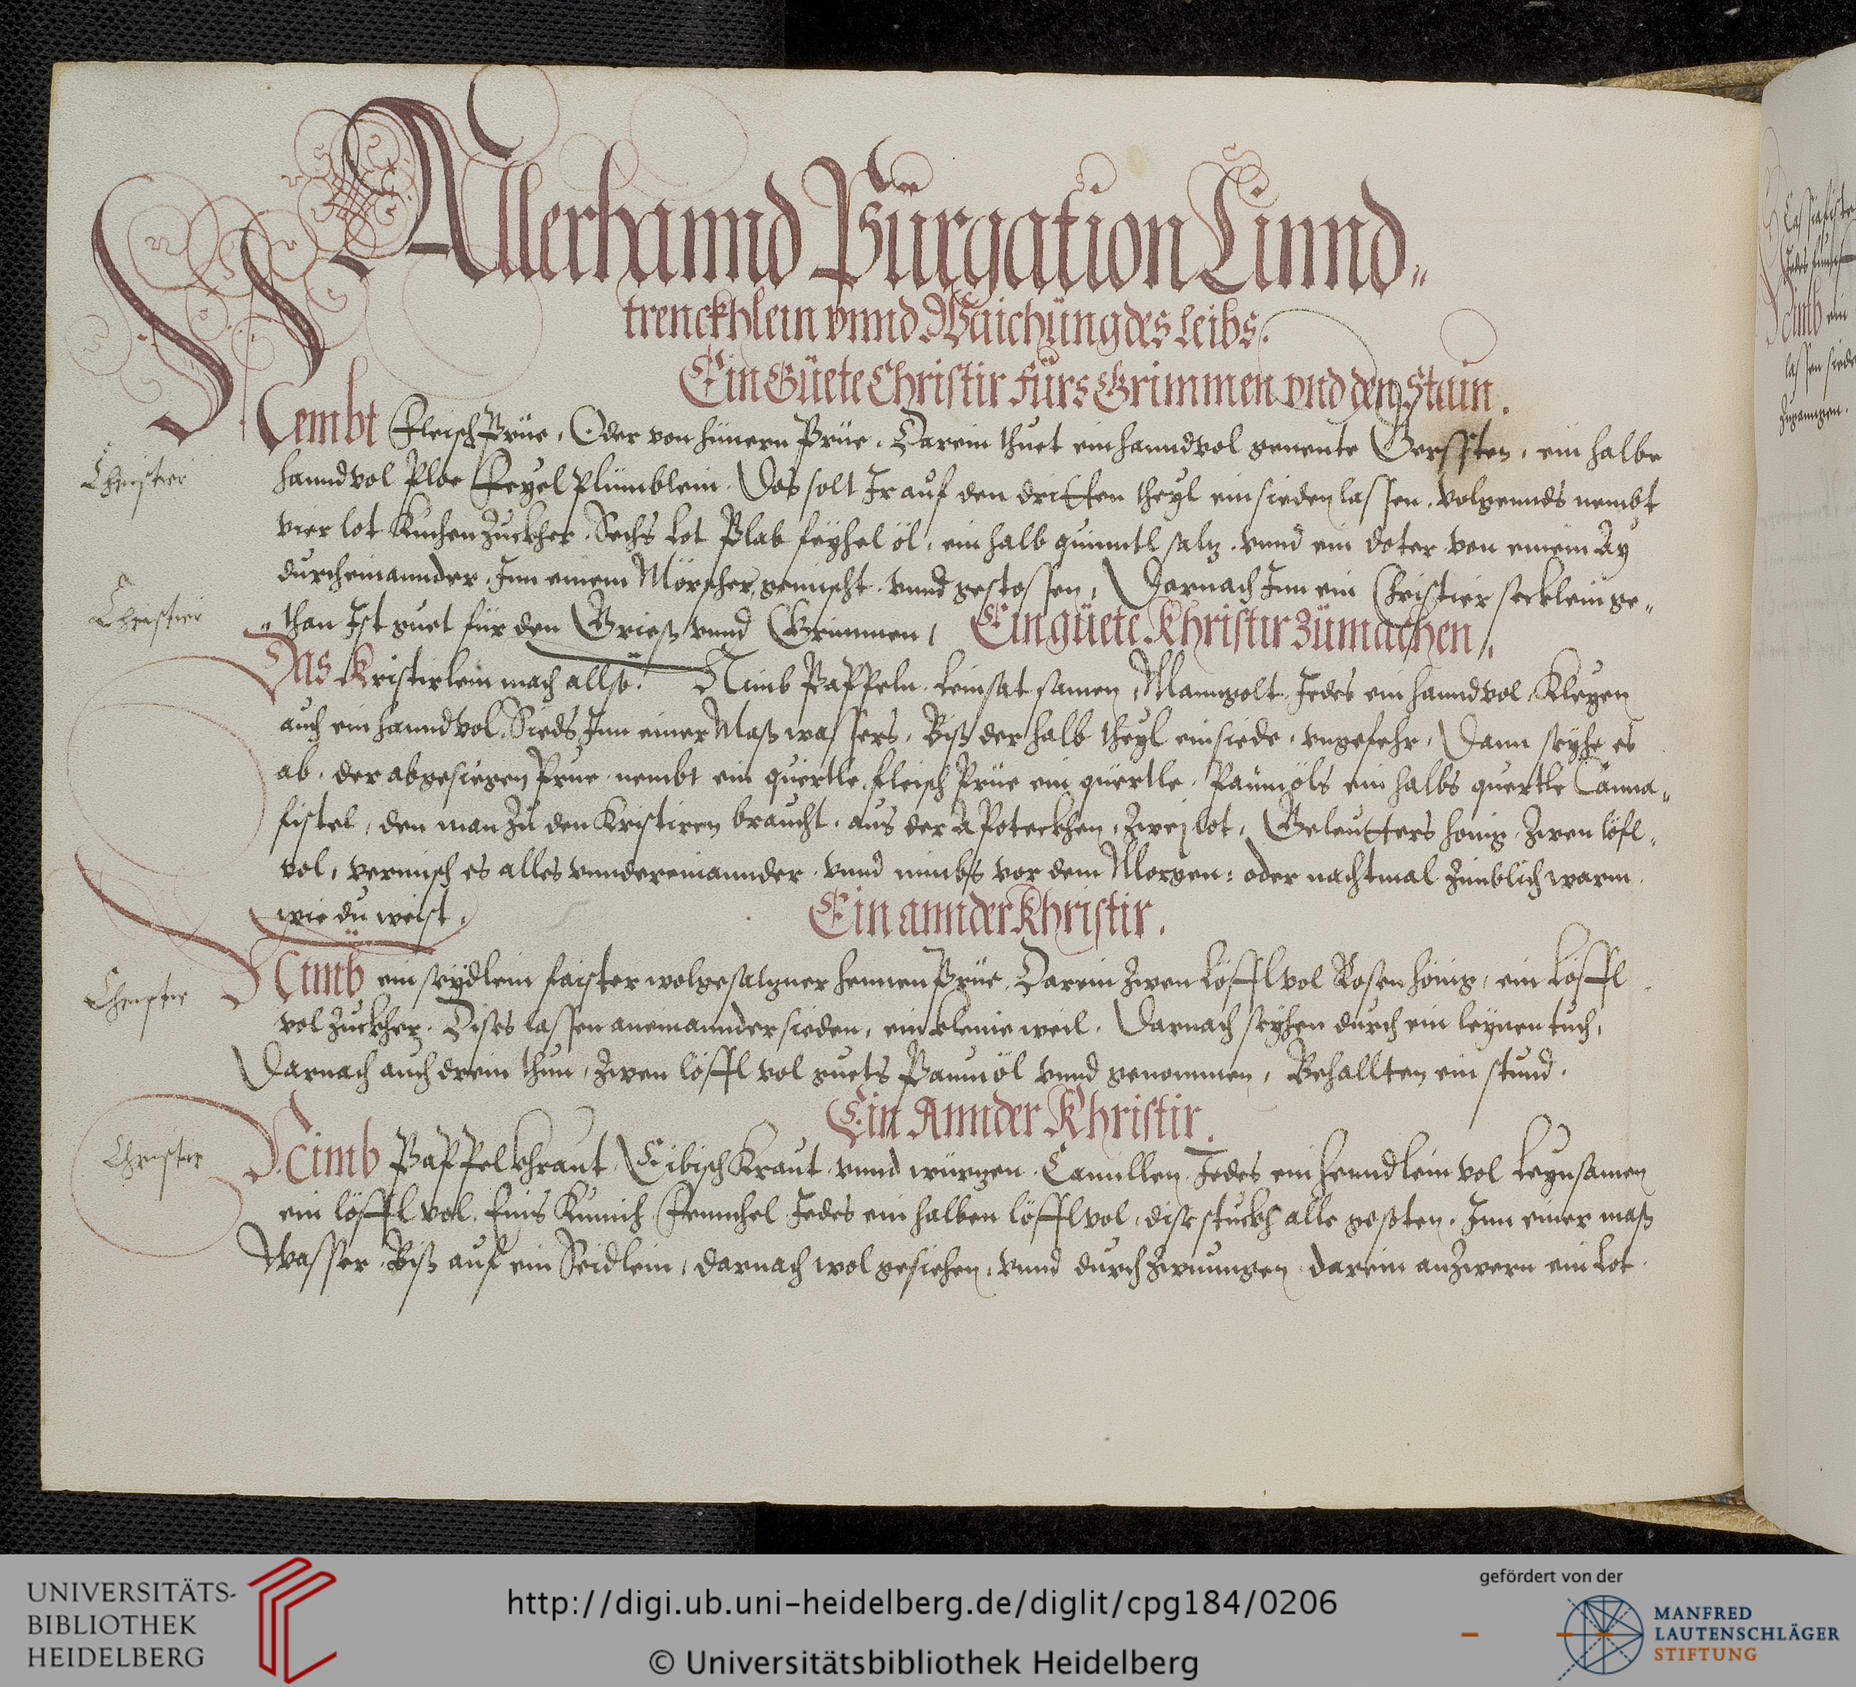 Allerhannd Pürgation Linnd„
trenckhlein vnnd Waichüng des leibs.
Ein Güete Christir fürs Grimmen vnd den Stain.
Nembt fleisch Prüe, Oder von hünern Prüe, Darein thuet ein hanndvol generte Gerssten, ein halbe
Christier
hanndvol Ploe feyel Plümblein. Das solt Ir auf den dritten theyl einsieden lassen, volgennds nembt
vier lot Kuchen Zuckher, Sechs lot Blab feyhel öl, ein halb quinntl saltz, vnnd ein doter von einem Ay
durcheinannder, Inn einem Mörscher, gemischt vnnd gestossen, Darnach Inn ein Christier secklein ge„
Christier
„than Ist guet für den Grieß vnnd Grimmen, Ein güete Khristir Zümachen„
Das Kristirlein mach allso. Nimb Pappeln, leinsat samen, Manngolt, Jedes ein hanndvol, Kleyen
auch ein hanndvol, Sieds Inn einer Maß wassers, Biß der halb theyl einsiede, vngefehr, Dann seyhe es
ab, der abgesiegen Prue, nembt ein quertle, fleisch Prüe ein quertle, Paumöls ein halbs quertle Canna„
fistel, den man Zu den Kristiren braucht, aus der APoteckhen, Zwei lot, Geleutters honig, Zwen löfl„
vol, vermisch es alles vnndereinannder, vnnd nimbs vor dem Morgen: oder nachtmal Zimblich warm
wie du weist.
Ein annder Khristir.
Nimb ein seydlein faister wolgesaltzner hennen Prüe, Darein Zwen Löffl vol Rosen honig, ein Löffl
Christir
vol Zuckher, Dises lassen aneinannder sieden, ein kleine weil, Darnach seyhen durch ein leynen tuch,
Darnach auch drein thun, Zwen löffl vol guets Paumöl vnnd genommen, Behallten ein stund.
Ein Annder Khristir.
Nimb Pappel khraut, Eibisch Kraut vnnd würtzen, Camillen, Jedes ein henndlein vol Leynsamen
Christir
ein löffl vol, Enis Kumich Fennchel Jedes ein halben löffl vol, dise stuckh alle gesoten, Inn einer maß
Wasser, Biß auf ein Seidlein, darnach wol gesiehen, vnnd durch Zwungen, darein anZwern ein Lot
Nimb ein
UNIVERSITÄTS-
BIBLIOTHEK
HEIDELBERG
http://digi.ub.uni-heidelberg.de/diglit/cpg184/0206
© Universitätsbibliothek Heidelberg
gefördert von der
MANFRED
LAUTENSCHLÄGER
STIFTUNG